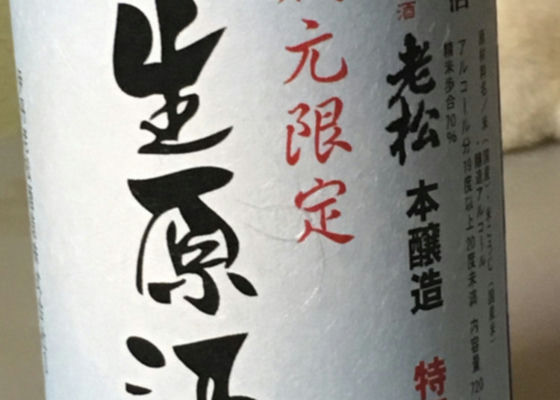 原材料名／米（国産）・米こうじ（国産米）
・醸造アルコール
アルコール分19度以上20度未満 内容量720
精米歩合70%
酒
老松 本醸造 特
元限定
生原酒